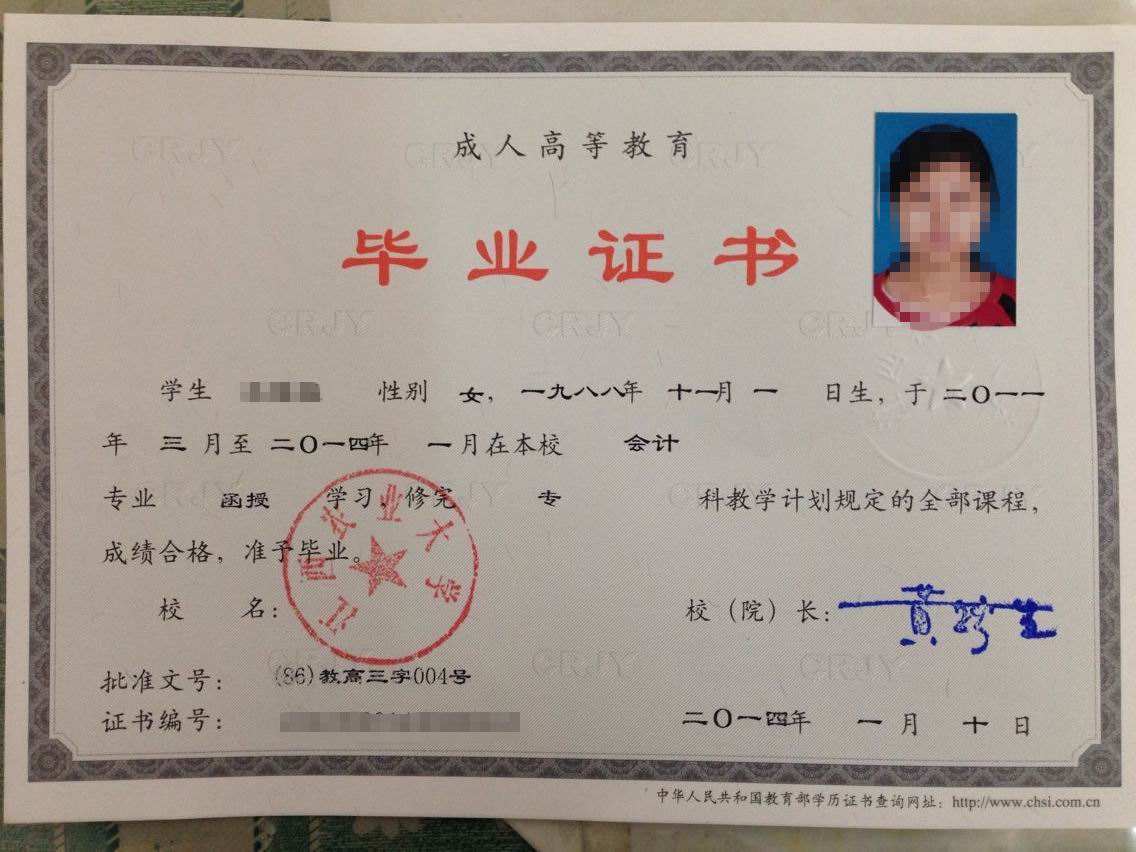 成人高等教育
毕业证书
学生 性别 女，一九八八年 十一月 一 日生，于 二O一一
年 三 月至 二O一四年 一月在本校 会计
专业 函授 学习，修完 专 科教学计划规定的全部课程，
成绩合格，准予毕业。
江西农业大学
校 名： 校（院）长：
批准文号： (86)教高三字004号
证书编号： 二O一四年 一月 十日
中华人民共和国教育部学历证书查询网址：http://www.chsi.com.cn
CRJY CRJY CRJY
CRJY CRJY CRJY